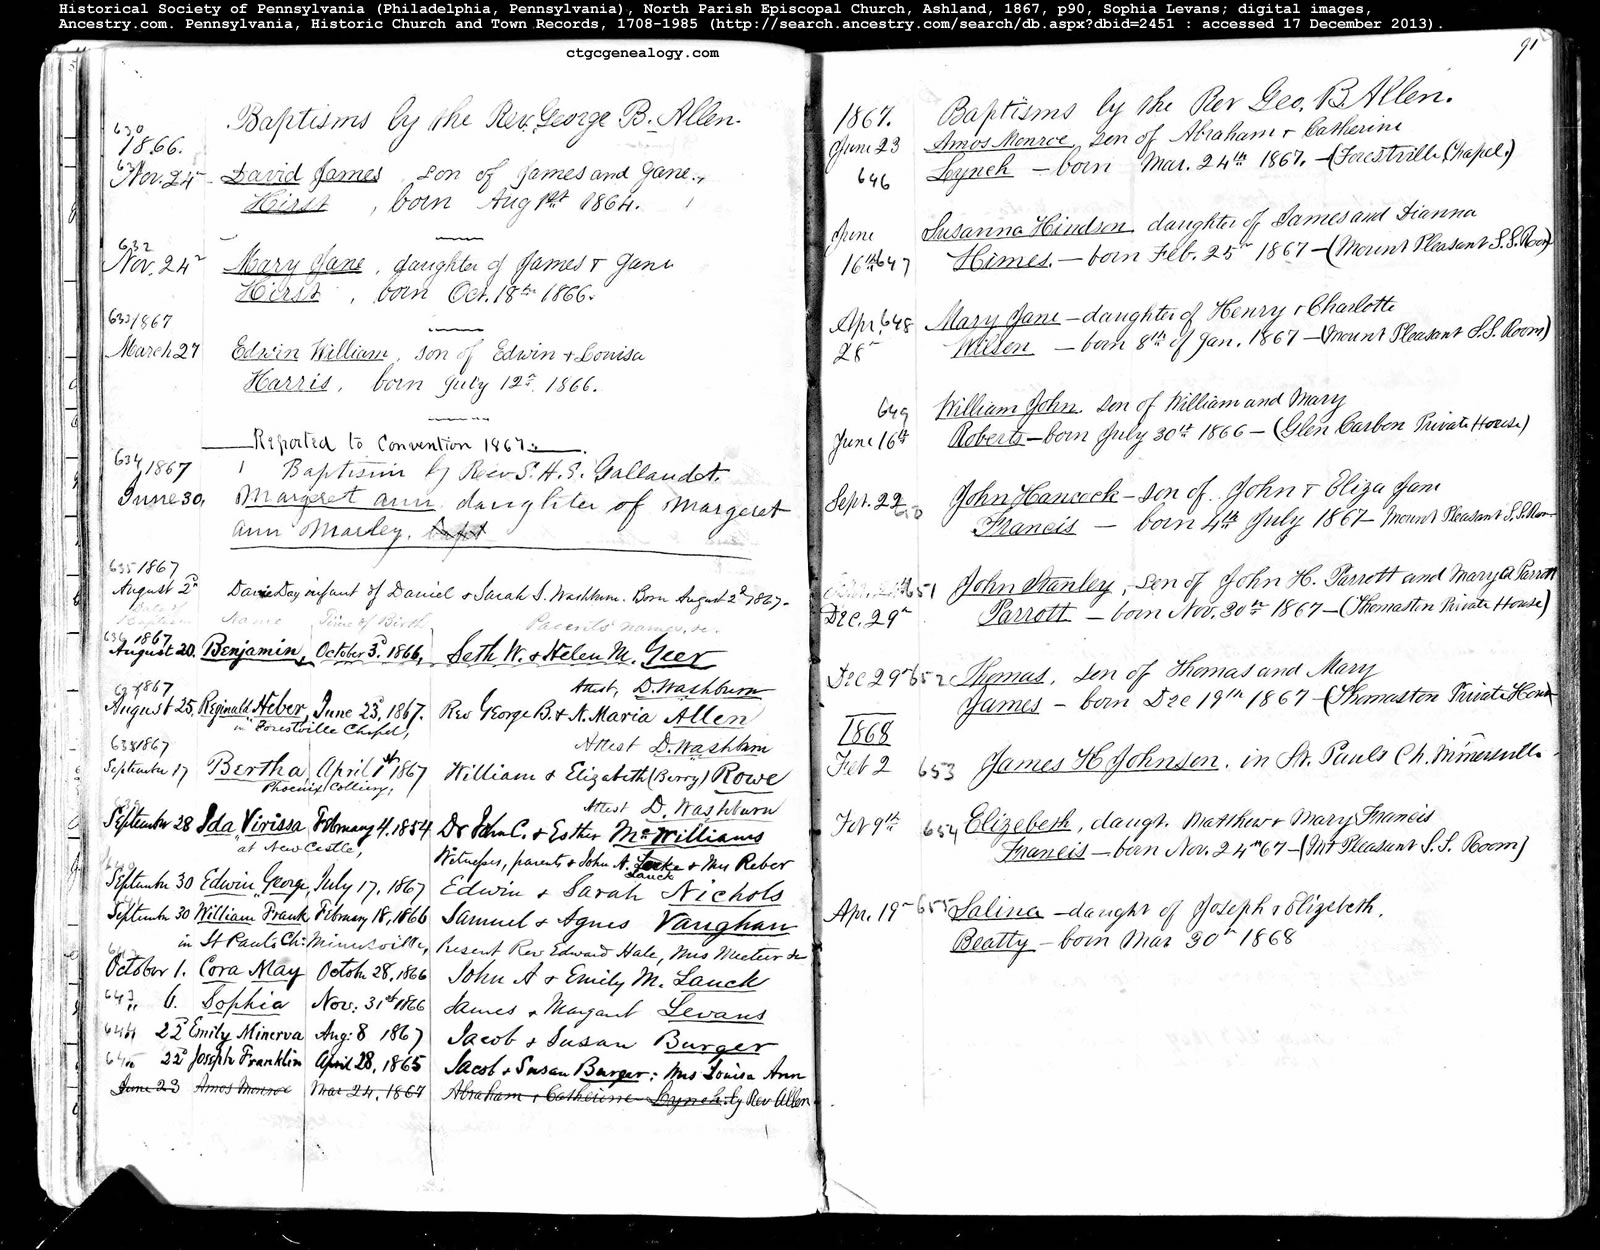 Historical Society of Pennsylvania (Philadelphia, Pennsylvania), North Parish Episcopal Church, Ashland, 1867, p90, Sophia Levans; digital images,
Ancestry.com. Pennsylvania, Historic Church and Town Records, 1708-1985 (http://search.ancestry.com/search/db.aspx?dbid=2451 : accessed 17 December 2013).
ctgcgenealogy.com
Baptisms by the Rev. George B. Allen.
630
1866.
631
Nov. 25 David James, son of James and Jane
Hirst, born Aug 1st 1864.
632
Nov. 24 Mary Jane, daughter of James & Jane
Hirst, born Oct. 18th 1866.
633 1867
March 27 Edwin William, son of Edwin & Louisa
Harris, born July 12th 1866.
Reported to Convention 1867.
634 1867 1 Baptism by Rev. S. H. S. Gallaudet.
June 30, Margaret ann daughter of Margeret
ann Marley.
635 1867
August 2d Davie Day infant of Daniel & Sarah S. Washburn. Born August 2d 1867.
Date of Baptism Name Time of Birth Parents names, &c.
636 1867
August 20. Benjamin, October 3d, 1866, Seth W. & Helen M. Geer
Attest, D. Washburn
637 1867
August 25, Reginald Heber, June 23d, 1867. Rev George B. & N. Maria Allen
in Forestville Chapel,
Attest D. Washburn
638 1867
September 17 Bertha, April 1st 1867 William & Elizabeth (Berry) Rowe
Phoenix Colliery,
Attest D. Washburn
September 28 Ida Virissa, February 4, 1854 Dr John C. & Esther McWilliams
at New Castle,
Witnesses, parents & John A. Lauck & Mrs Reber
September 30 Edwin George, July 17, 1867 Edwin & Sarah Nichols
September 30 William Frank February 18, 1866 Samuel & Agnes Vaughan
in St Pauls Ch: Minersville, Present Rev Edward Hale, Mrs &c
October 1. Cora May October 28, 1866 John A & Emily M. Lauck
643 " 6. Sophia Nov: 31st 1866 James & Margaret Levans
644 22d Emily Minerva Aug: 8 1867 Jacob & Susan Burger
645 22d Joseph Franklin April 28, 1865 Jacob & Susan Burger: Mrs Louisa Ann
June 23 Amos Monroe Mar 24, 1867 Abraham & Catherine Lynch: by Rev Allen
91
1867. Baptisms by the Rev Geo. B. Allen.
June 23 Amos Monroe, son of Abraham & Catherine
646 Lynch – born Mar. 24th 1867. – (Forestville Chapel.)
June Susanna Hindson, daughter of James and Dianna
16th 647 Himes. – born Feb. 25th 1867 – (Mount Pleasant S.S. Room)
Apr. 648 Mary Jane – daughter of Henry & Charlotte
28th Wilson – born 8th of Jan. 1867 – (Mount Pleasant S.S. Room)
649 William John, son of William and Mary
June 16th Roberts – born July 30th 1866 – (Glen Carbon Private House)
Sept. 22 650 John Hancock – son of John & Eliza Jane
Francis – born 4th July 1867 – Mount Pleasant S.S. Room
651 John Stanley, son of John H. Parrott and Mary A Parrott
Dec. 29th Parrott – born Nov. 30th 1867 – (Thomaston Private House)
Dec 29th 652 Thomas, son of Thomas and Mary
James – born Dec 19th 1867 – (Thomaston Private House
1868
Feb 2 653 James H Johnson, in St. Pauls Ch. Minersville
Feb 9th 654 Elizebeth, daught. Matthew & Mary Francis
Francis – born Nov. 24th 67 – (Mt Pleasant S.S. Room)
Apr. 19th 655 Salina – daught of Joseph & Elizebeth.
Beatty – born Mar 30th 1868